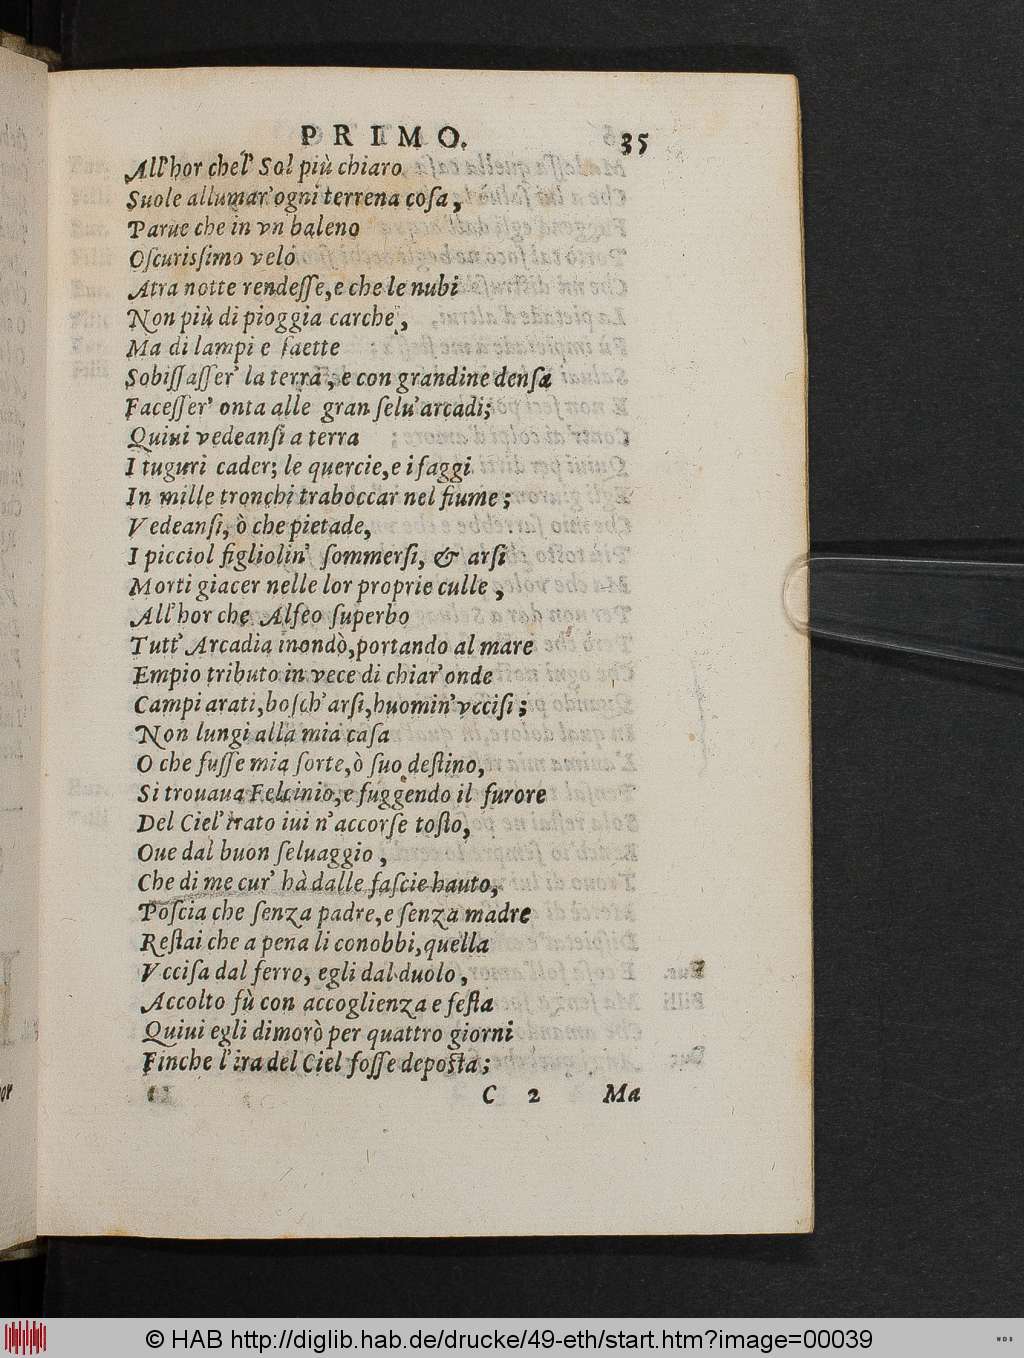 PRIMO. 35
All'hor che'l Sol più chiaro
Suole allumar'ogni terrena coſa,
Parue che in vn baleno
Oſcuriſſimo velo
Atra notte rendeſſe,e che le nubi
Non più di pioggia carche,
Ma di lampi e ſaette
Sobiſſaſſer' la terra, e con grandine denſa
Faceſſer' onta alle gran ſelu'arcadi;
Quiui vedeanſi a terra
I tuguri cader; le quercie,e i faggi
In mille tronchi traboccar nel fiume;
Vedeanſi, ò che pietade,
I picciol figliolin' ſommerſi, & arſi
Morti giacer nelle lor proprie culle,
All'hor che Alfeo ſuperbo
Tutt' Arcadia inondò,portando al mare
Empio tributo in vece di chiar'onde
Campi arati,boſch'arſi,huomin'vcciſi;
Non lungi alla mia caſa
O che fuſſe mia ſorte,ò ſuo deſtino,
Si trouaua Felcinio,e fuggendo il furore
Del Ciel'irato iui n'accorſe toſto,
Oue dal buon ſeluaggio,
Che di me cur' hà dalle faſcie hauto,
Poſcia che ſenza padre,e ſenza madre
Reſtai che a pena li conobbi,quella
Vcciſa dal ferro, egli dal duolo,
Accolto fù con accoglienza e feſta
Quiui egli dimorò per quattro giorni
Finche l'ira del Ciel foſſe depoſta;
C 2 Ma
© HAB http://diglib.hab.de/drucke/49-eth/start.htm?image=00039